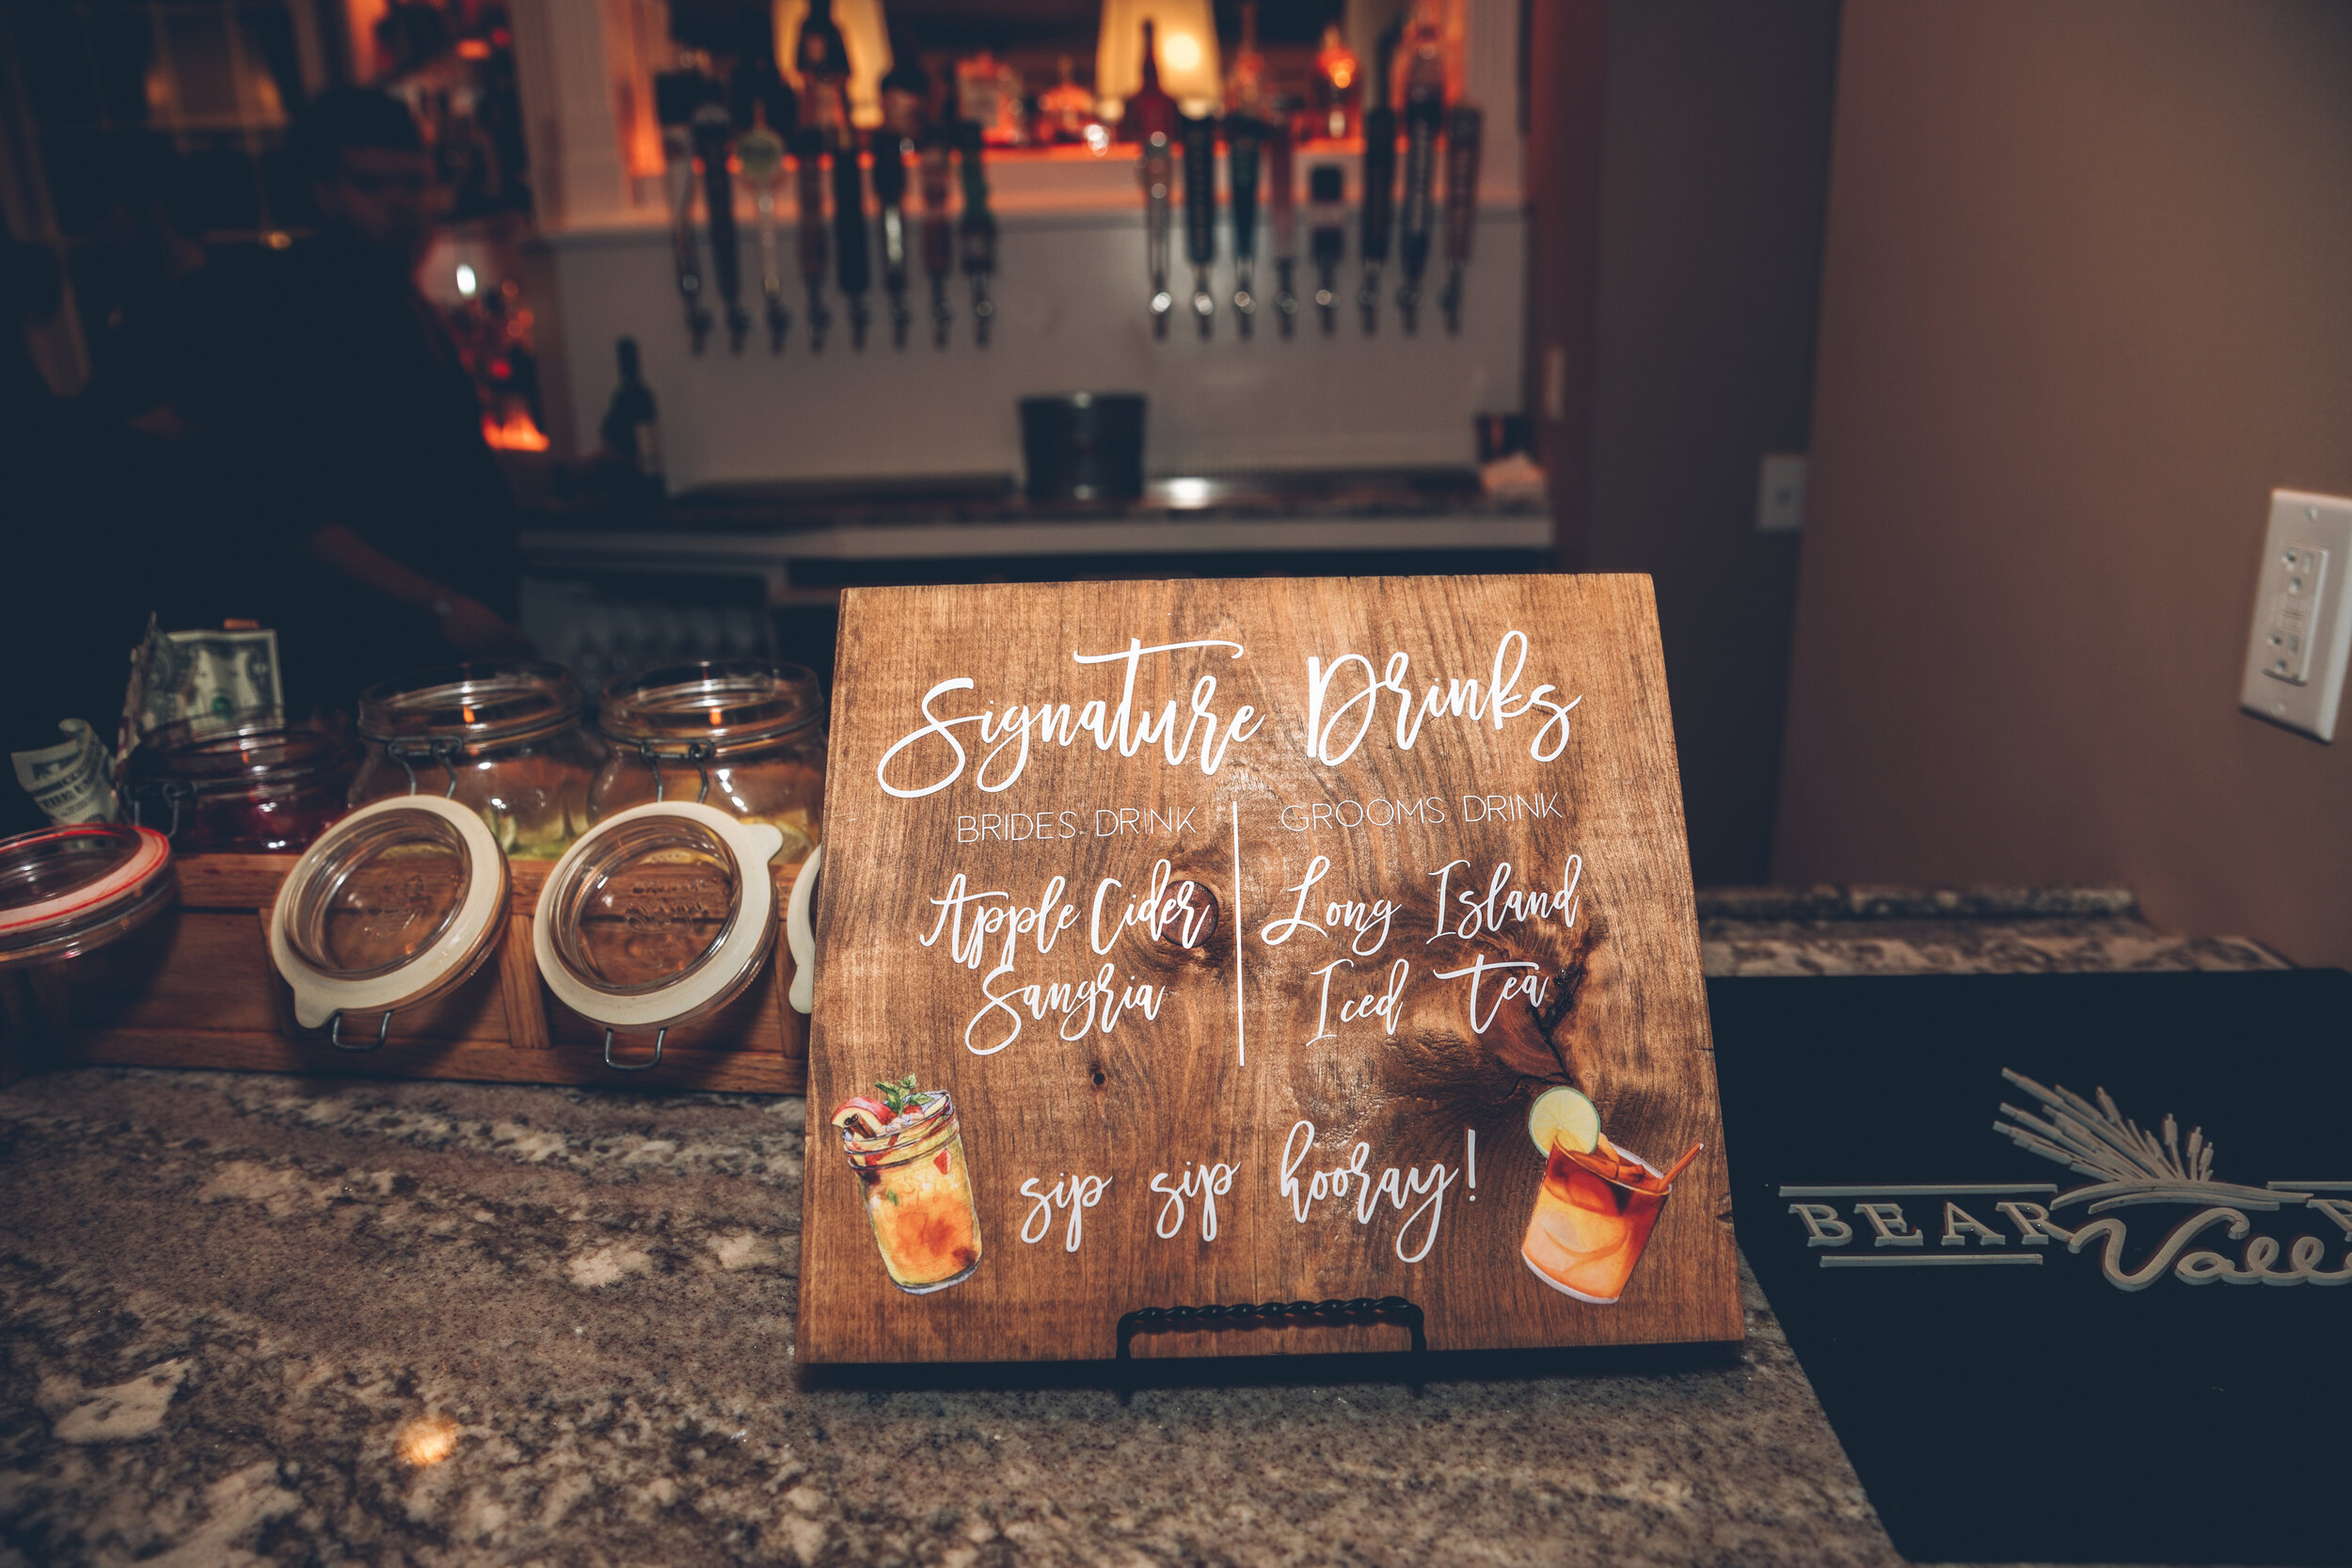 Signature Drinks
BRIDES DRINK
Apple Cider
Sangria
GROOMS DRINK
Long Island
Iced Tea
sip sip hooray!
BEAR
Vall